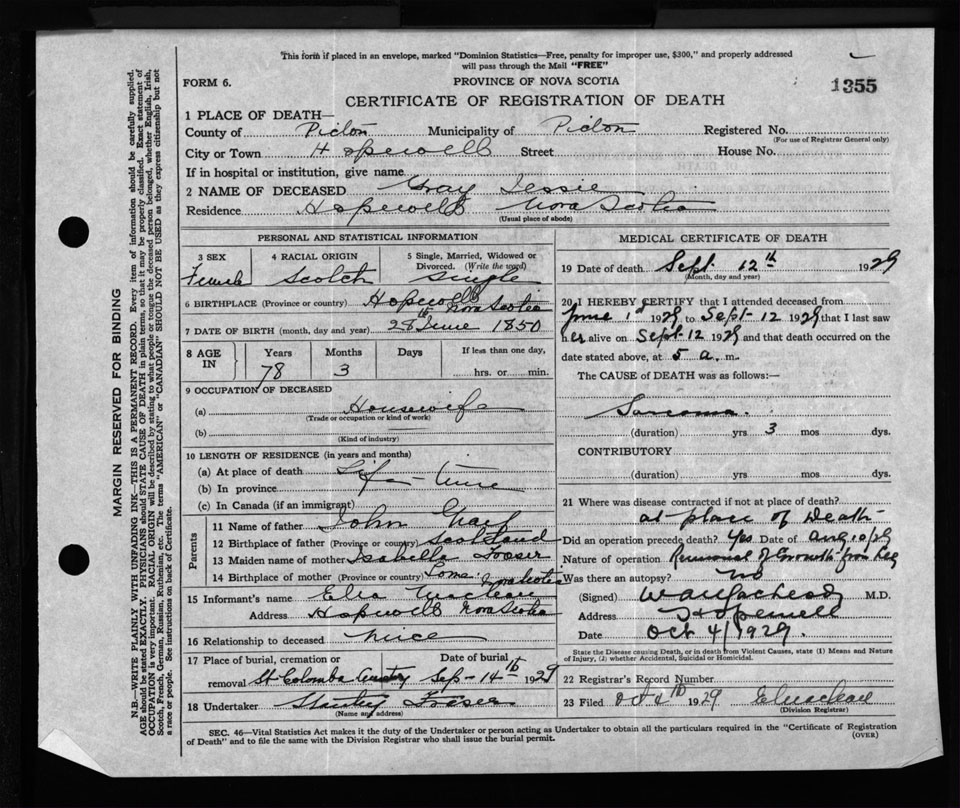 This form if placed in an envelope, marked "Dominion Statistics—Free, penalty for improper use, $300," and properly addressed
will pass through the Mail "FREE"
FORM 6.
PROVINCE OF NOVA SCOTIA
1355
CERTIFICATE OF REGISTRATION OF DEATH
1 PLACE OF DEATH—
County of Pictou Municipality of Pictou Registered No.
(For use of Registrar General only)
City or Town Hopewell Street House No.
If in hospital or institution, give name
2 NAME OF DECEASED Gray Jessie
Residence Hopewell Nova Scotia
(Usual place of abode)
PERSONAL AND STATISTICAL INFORMATION
3 SEX 4 RACIAL ORIGIN 5 Single, Married, Widowed or
Divorced. (Write the word)
Female Scotch Single
6 BIRTHPLACE (Province or country) Hopewell Nova Scotia
7 DATE OF BIRTH (month, day and year) 28th June 1850
8 AGE IN Years Months Days If less than one day,
78 3 hrs. or min.
9 OCCUPATION OF DECEASED
(a) Housewife
(Trade or occupation or kind of work)
(b)
(Kind of industry)
10 LENGTH OF RESIDENCE (in years and months)
(a) At place of death Life time
(b) In province
(c) In Canada (if an immigrant)
Parents
11 Name of father John Gray
12 Birthplace of father (Province or country) Scotland
13 Maiden name of mother Isabella Fraser
14 Birthplace of mother (Province or country) Nova Scotia
15 Informant's name Maclean
Address Hopewell Nova Scotia
16 Relationship to deceased niece
17 Place of burial, cremation or Date of burial
removal St Colomba Sep 14th 1929
18 Undertaker Stanley Fraser
(Name and address)
MEDICAL CERTIFICATE OF DEATH
19 Date of death Sept. 12th 1929
(Month, day and year)
20 I HEREBY CERTIFY that I attended deceased from
June 1st 1929 to Sept-12 1929 that I last saw
her alive on Sept. 12 1929 and that death occurred on the
date stated above, at 5 a. m.
The CAUSE OF DEATH was as follows:—
Sarcoma.
(duration) yrs 3 mos dys.
CONTRIBUTORY
(duration) yrs. mos. dys.
21 Where was disease contracted if not at place of death?
at place of Death
Did an operation precede death? Yes Date of Aug 10/29
Nature of operation Removal of Growth from Leg
Was there an autopsy? No
(Signed) M.D.
Address Hopewell
Date Oct 4/1929.
State the Disease causing Death, or in death from Violent Causes, state (1) Means and Nature
of Injury, (2) whether Accidental, Suicidal or Homicidal.
22 Registrar's Record Number
23 Filed Oct 1929
(Division Registrar)
SEC. 46—Vital Statistics Act makes it the duty of the Undertaker or person acting as Undertaker to obtain all the particulars required in the "Certificate of Registration
of Death" and to file the same with the Division Registrar who shall issue the burial permit.
(OVER)
MARGIN RESERVED FOR BINDING
N.B.—WRITE PLAINLY WITH UNFADING INK—THIS IS A PERMANENT RECORD. Every item of information should be carefully supplied.
AGE should be stated EXACTLY. PHYSICIANS should STATE CAUSE OF DEATH in plain terms, so that it may be properly classified. Exact statement of
OCCUPATION is very important. RACIAL ORIGIN will be described by stating to what people or tongue the deceased person belonged, whether English, Irish,
Scotch, French, German, Russian, Ruthenian, etc. The terms "AMERICAN" or "CANADIAN" SHOULD NOT BE USED as they express citizenship but not
a race or people. See instructions on back of Certificate.